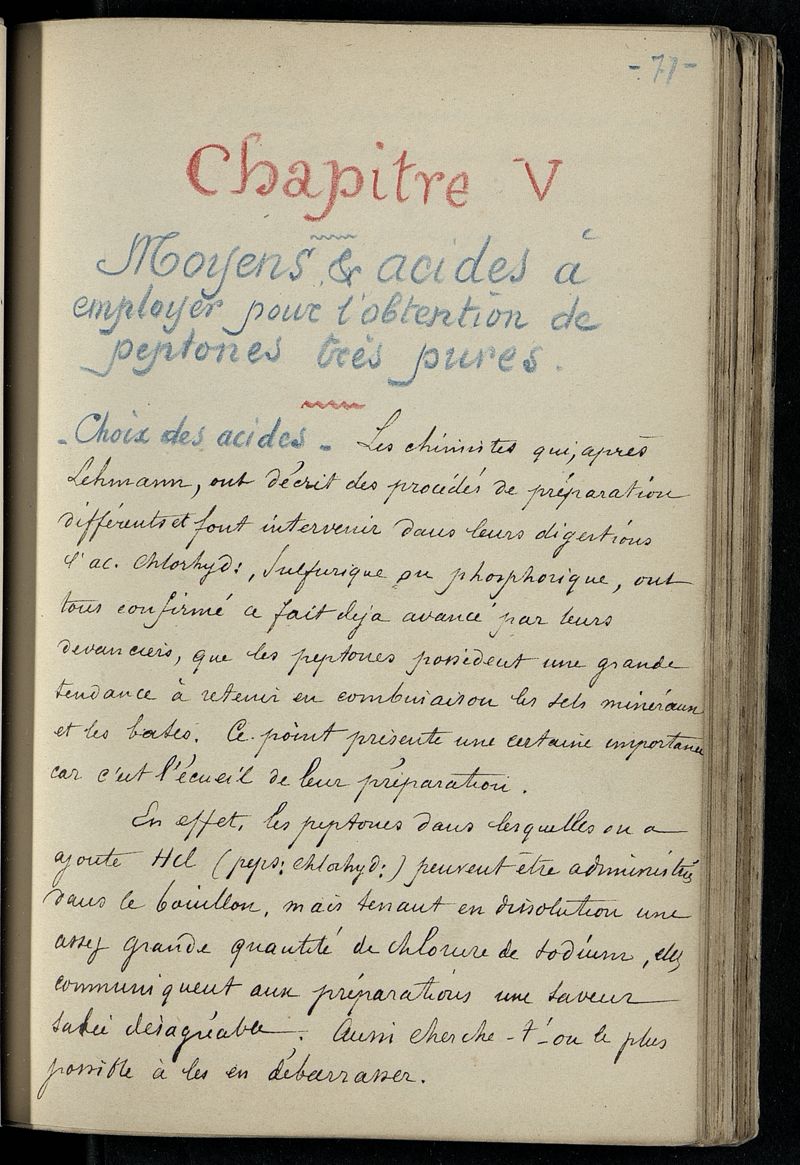 - 71 -
Chapitre V
Moyens & acides à
employer pour l'obtention de
peptones très pures.
- Choix des acides - Les chimistes qui, après
Lehmann, ont décrit des procédés de préparation
différents et font intervenir dans leurs digestions
l'ac. chlorhyd:, sulfurique ou phosphorique, ont
tous confirmé ce fait deja avancé par leurs
devanciers, que les peptones possèdent une grande
tendance à retenir en combinaison les sels minéraux
et les bases. Ce point présente une certaine importance
car c'est l'écueil de leur préparation.
En effet, les peptones dans lesquelles on a
ajouté HCl (peps: chlorhyd:) peuvent être administrés
dans le bouillon, mais tenant en dissolution une
assez grande quantité de chlorure de sodium, elles
communiquent aux préparations une saveur
salée désagréable. Aussi cherche-t-on le plus
possible à les en débarrasser.